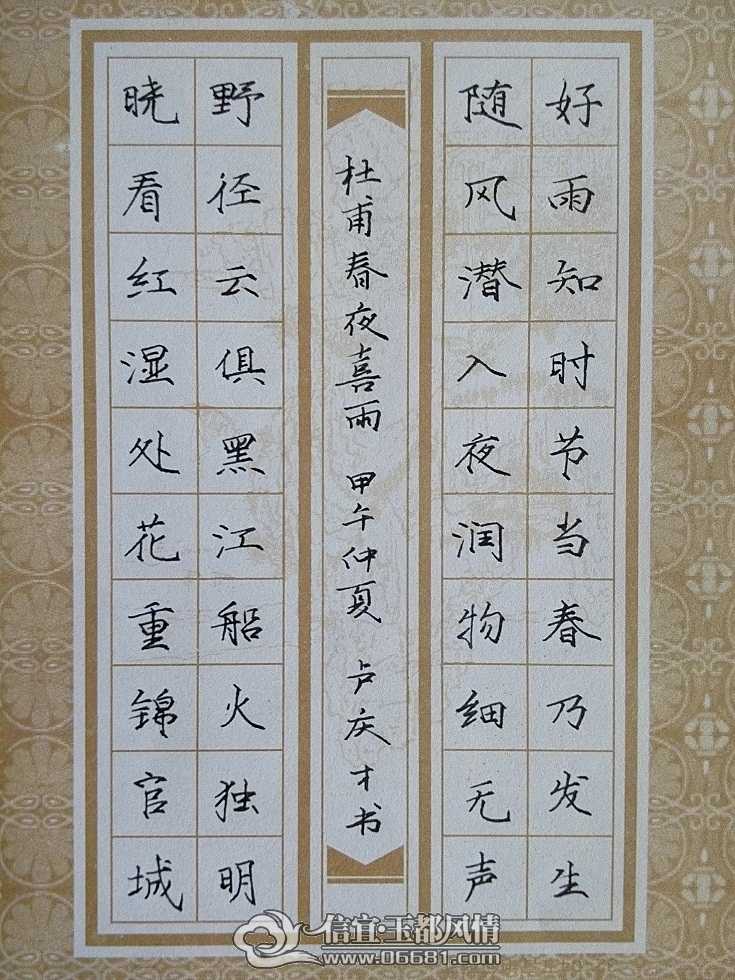 好雨知时节当春乃发生
随风潜入夜润物细无声
杜甫春夜喜雨 甲午仲夏 卢庆才书
野径云俱黑江船火独明
晓看红湿处花重锦官城
信宜·玉都风情
www.06681.com